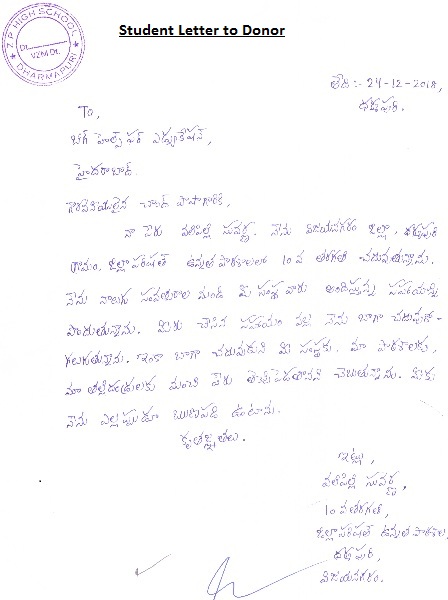 Student Letter to Donor
Z P HIGH SCHOOL
Dt.
VZM Dt.
DHARMAPURI
తేది:- 24-12-2018,
ధర్మపురి.
To,
బిగ్ హెల్ప్ ఫర్ ఎడ్యుకేషన్,
హైదరాబాద్.
గౌరవనీయులైన చాంద్ పాషాగారికి,
నా పేరు వలిపిల్లి సువర్ణ. నేను విజయనగరం జిల్లా, ధర్మపురి
గ్రామం. జిల్లా పరిషత్ ఉన్నత పాఠశాలలో 10వ తరగతి చదువుతున్నాను.
నేను నాలుగు సంవత్సరాల నుండి మీ సంస్థ వారు అందిస్తున్న సహాయాన్ని
పొందుతున్నాను. మీరు చేసిన సహాయం వల్ల నేను బాగా చదువుకో-
గలుగుతున్నాను. ఇంకా బాగా చదువుకుని మీ సంస్థకు, మా పాఠశాలకు,
మా తల్లిదండ్రులకు మంచి పేరు తెచ్చిపెడతానని చెబుతున్నాను. మీకు
నేను ఎల్లప్పుడూ ఋణపడి ఉంటాను.
కృతజ్ఞతలు.
ఇట్లు,
వలిపిల్లి సువర్ణ,
10వ తరగతి,
జిల్లా పరిషత్ ఉన్నత పాఠశాల,
ధర్మపురి,
విజయనగరం.